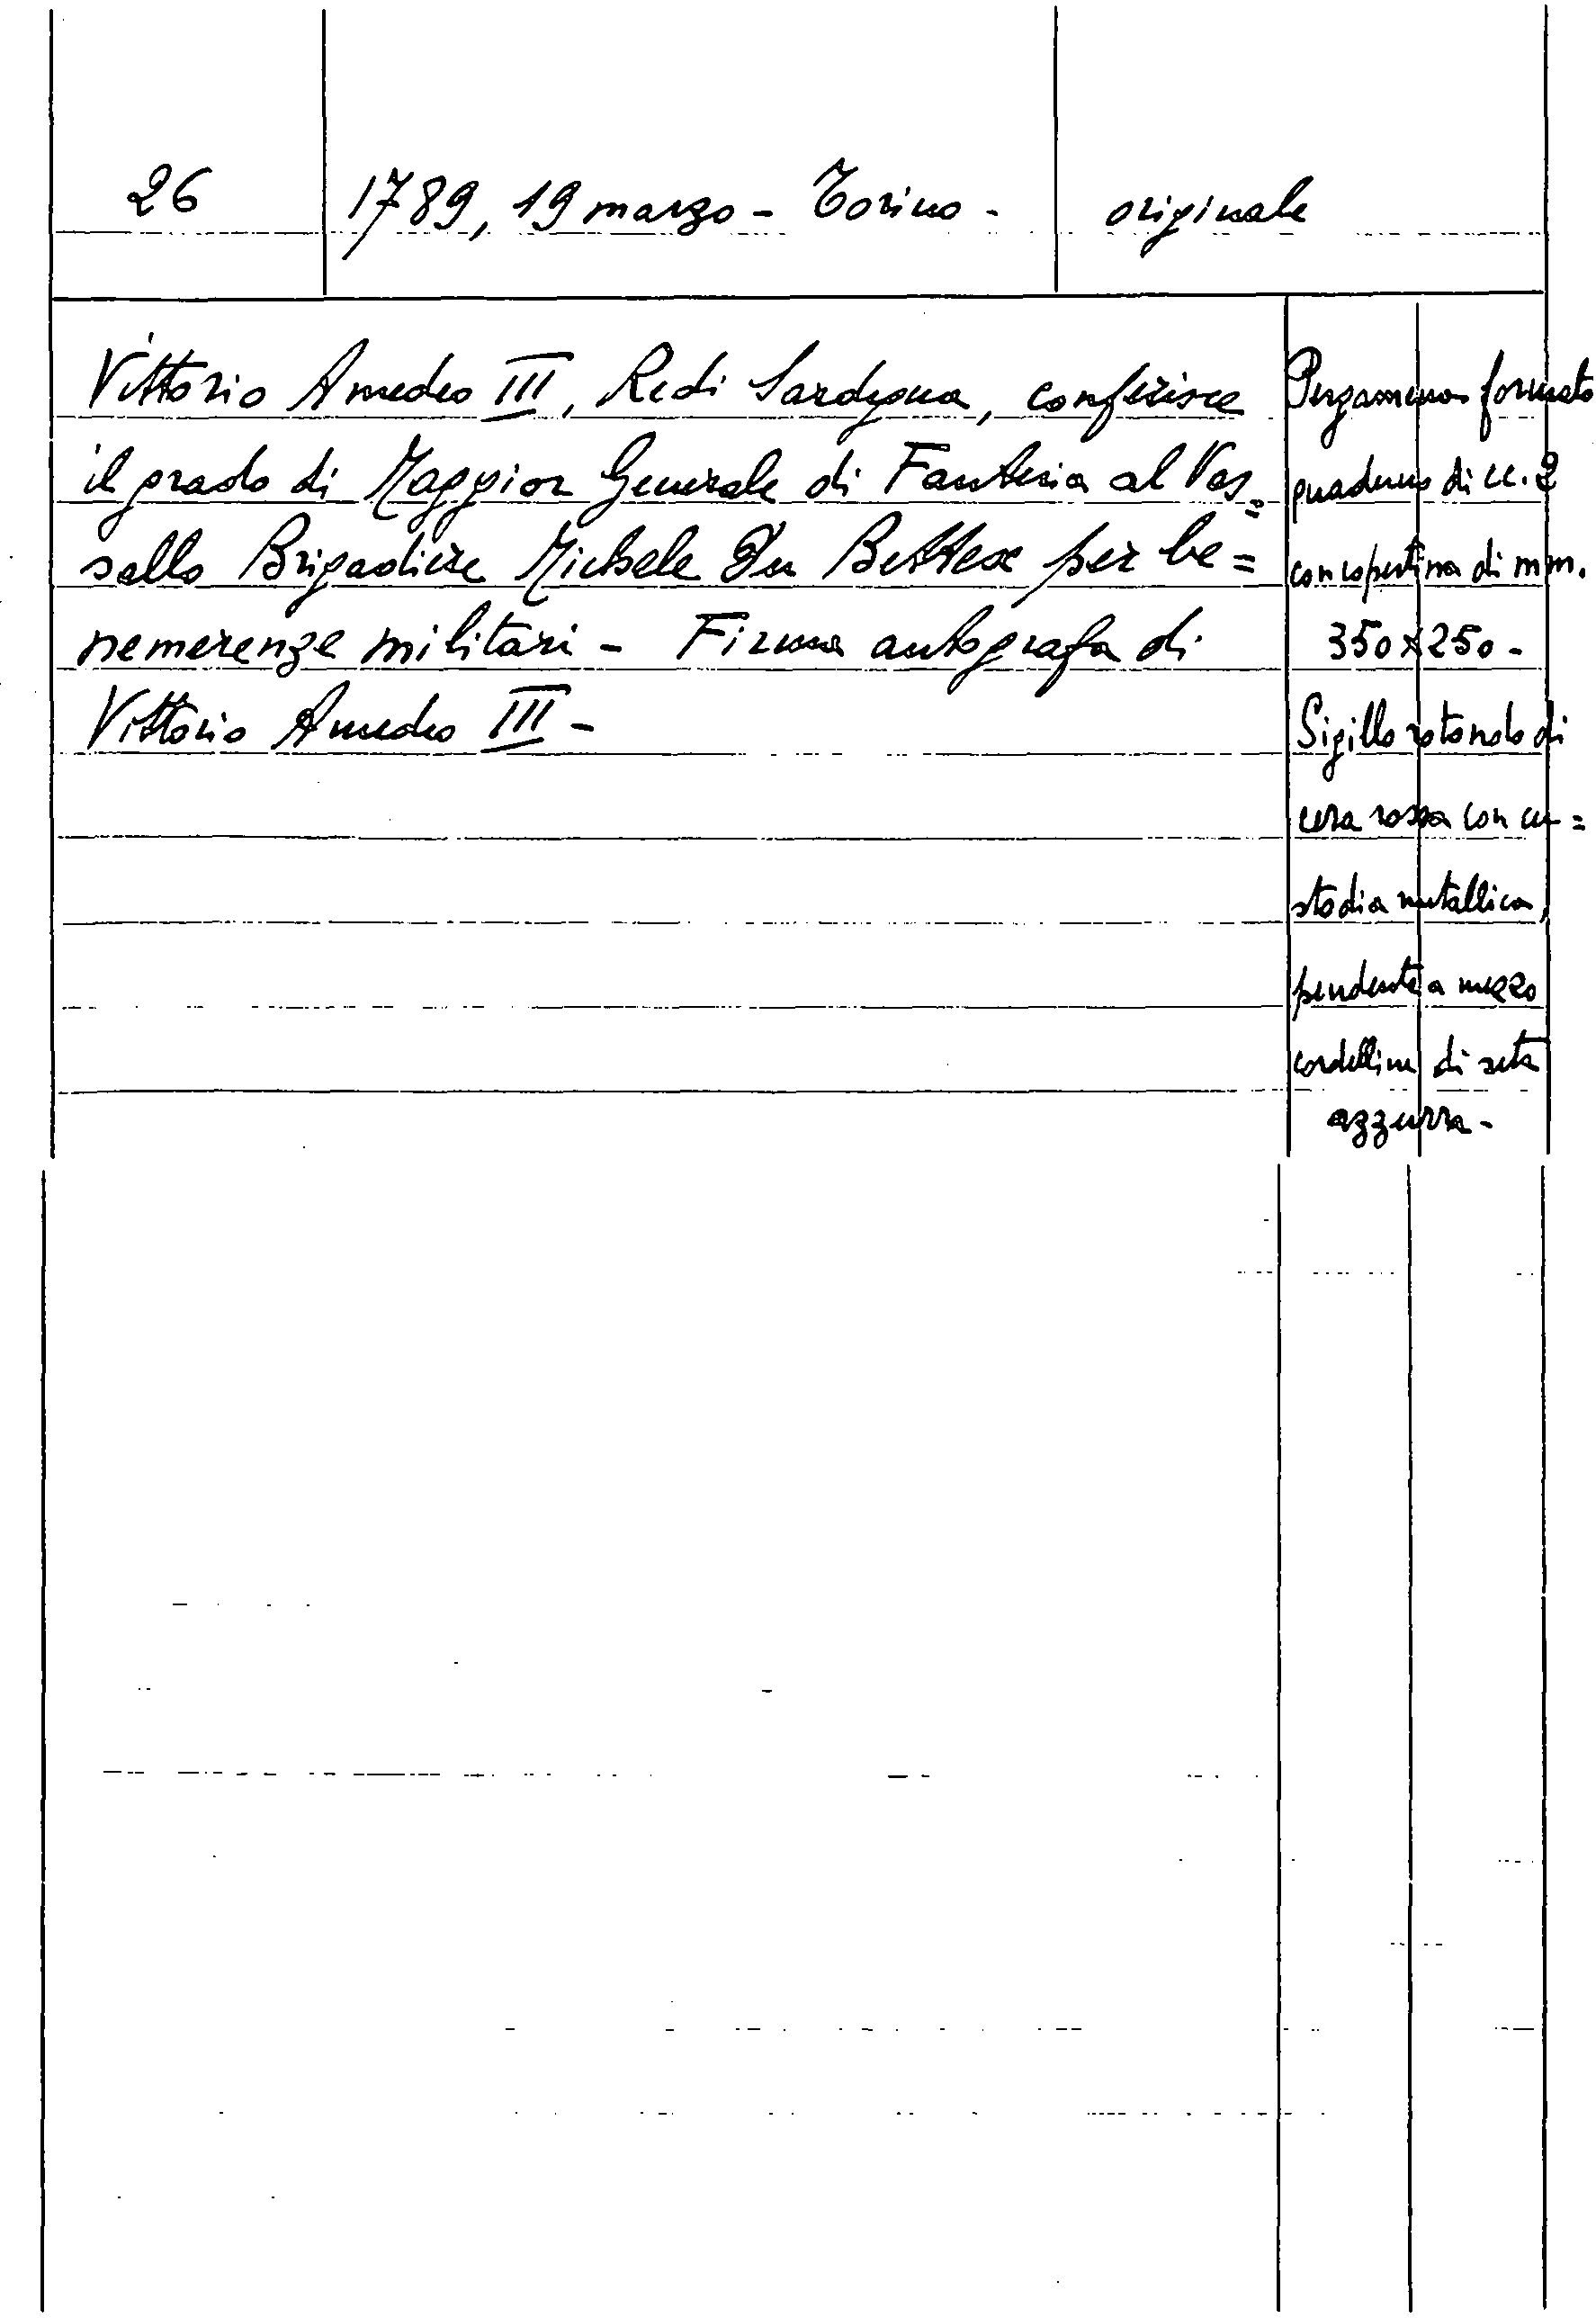 26
1789, 19 marzo - Torino -
originale
Vittorio Amedeo III, Re di Sardegna, conferisce
il grado di Maggior Generale di Fanteria al Vas=
sallo Brigadiere Michele Du Bettex per be=
nemerenze militari - Firma autografa di
Vittorio Amedeo III -
Pergamena formato
quaderno di cc. 2
con copertina di mm.
350x250 -
Sigillo rotondo di
cera rossa con cu=
stodia metallica,
pendente a mezzo
cordelline di seta
azzurra -